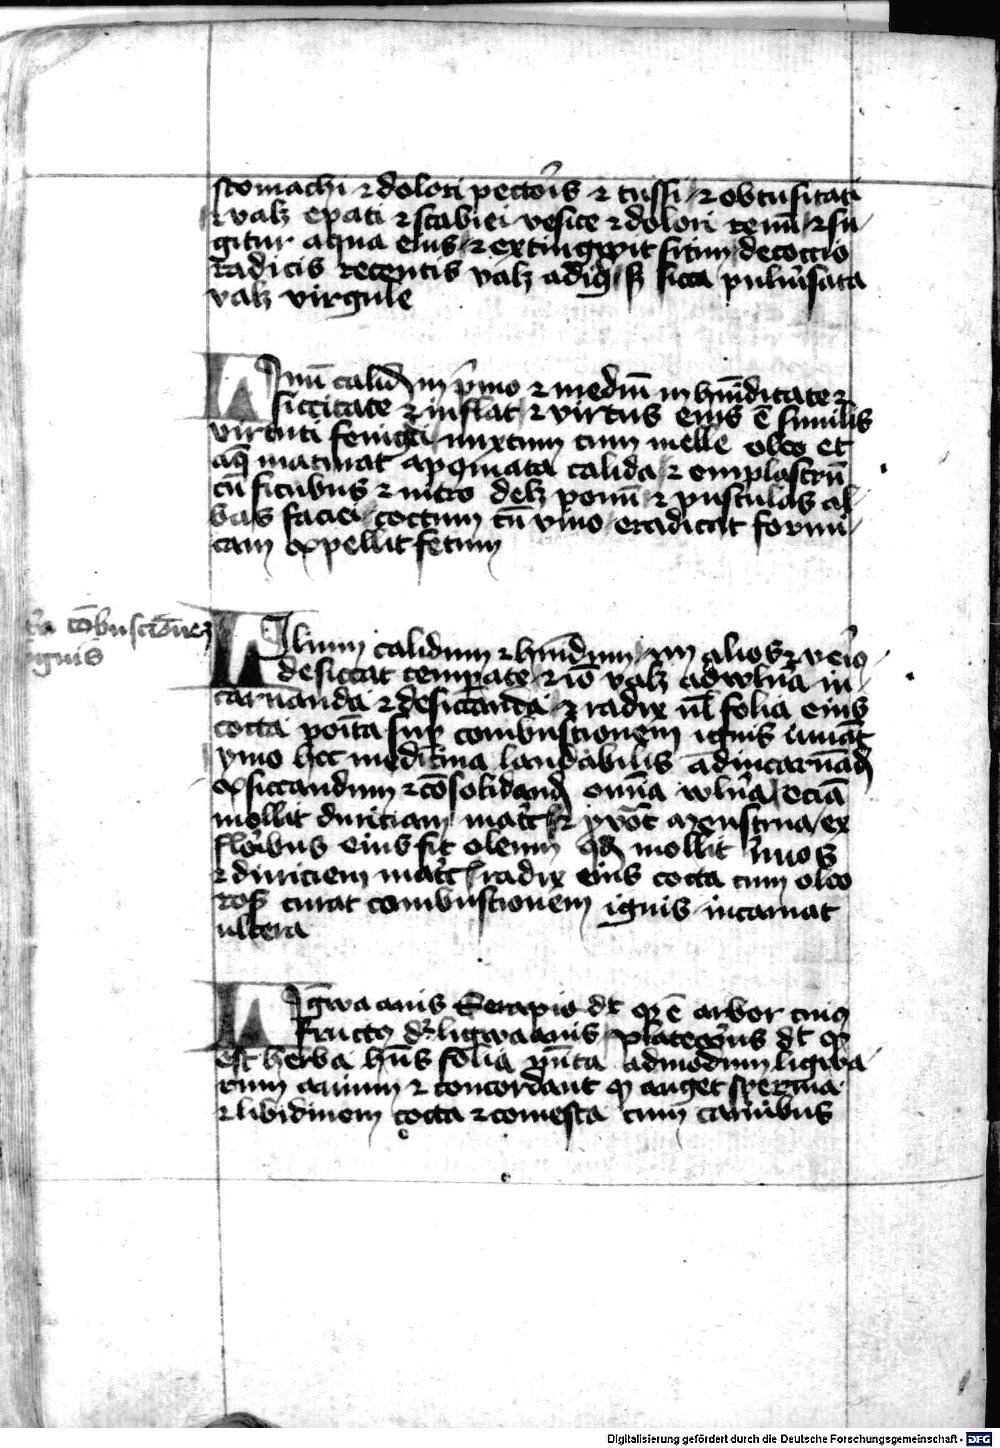 stomachi ⁊ dolori pectoris ⁊ tussi ⁊ obtusitati
⁊ valꝫ epati ⁊ scabiei vesice ⁊ dolori renū ⁊ su
gitur aqua eius ⁊ extingwit sitim decoctio
radicis recentis valꝫ sicca puluisata
valꝫ virgule
Linū calid in pmo ⁊ mediū in hūiditate ⁊
siccitate ⁊ inflat ⁊ virtus eius ē similis
virtuti fenigci mixtum cum melle oleo et
aq̄ maturat apostmata calida ⁊ emplastrū
cū ficubus ⁊ nitro delꝫ ponū ⁊ pustulas al
bas faciei coctum cū vino eradicat formi
cam expellit fetum
cōbustionē
ignis
Lilium calidum ⁊ hūidum
desiccat temperate ⁊ iō valꝫ ad wlna in
carnanda ⁊ desiccanda ⁊ radix ul folia eius
cocta poīta sup combustionem ignis iuuāt
ymo hec medicina laudabilis ad incarnād
exsiccandum ⁊ cōsolidand omīa wlna eciā
mollit duriciam matrc ⁊ menstrua ex
floribus eius fit oleum qd mollit neruos
⁊ duriciem matrc radix eius cocta cum oleo
ros curat combustionem ignis incarnat
ulcera
Ligwa auis Serapio dt q ē arbor cuiꝯ
fructꝯ dr ligwa auis platearius dt q
est herba hns folia admodum ligwa
rum auium ⁊ concordant q auget sperma
⁊ libidinem cocta ⁊ comesta cum carnibus
Digitalisierung gefördert durch die Deutsche Forschungsgemeinschaft - DFG